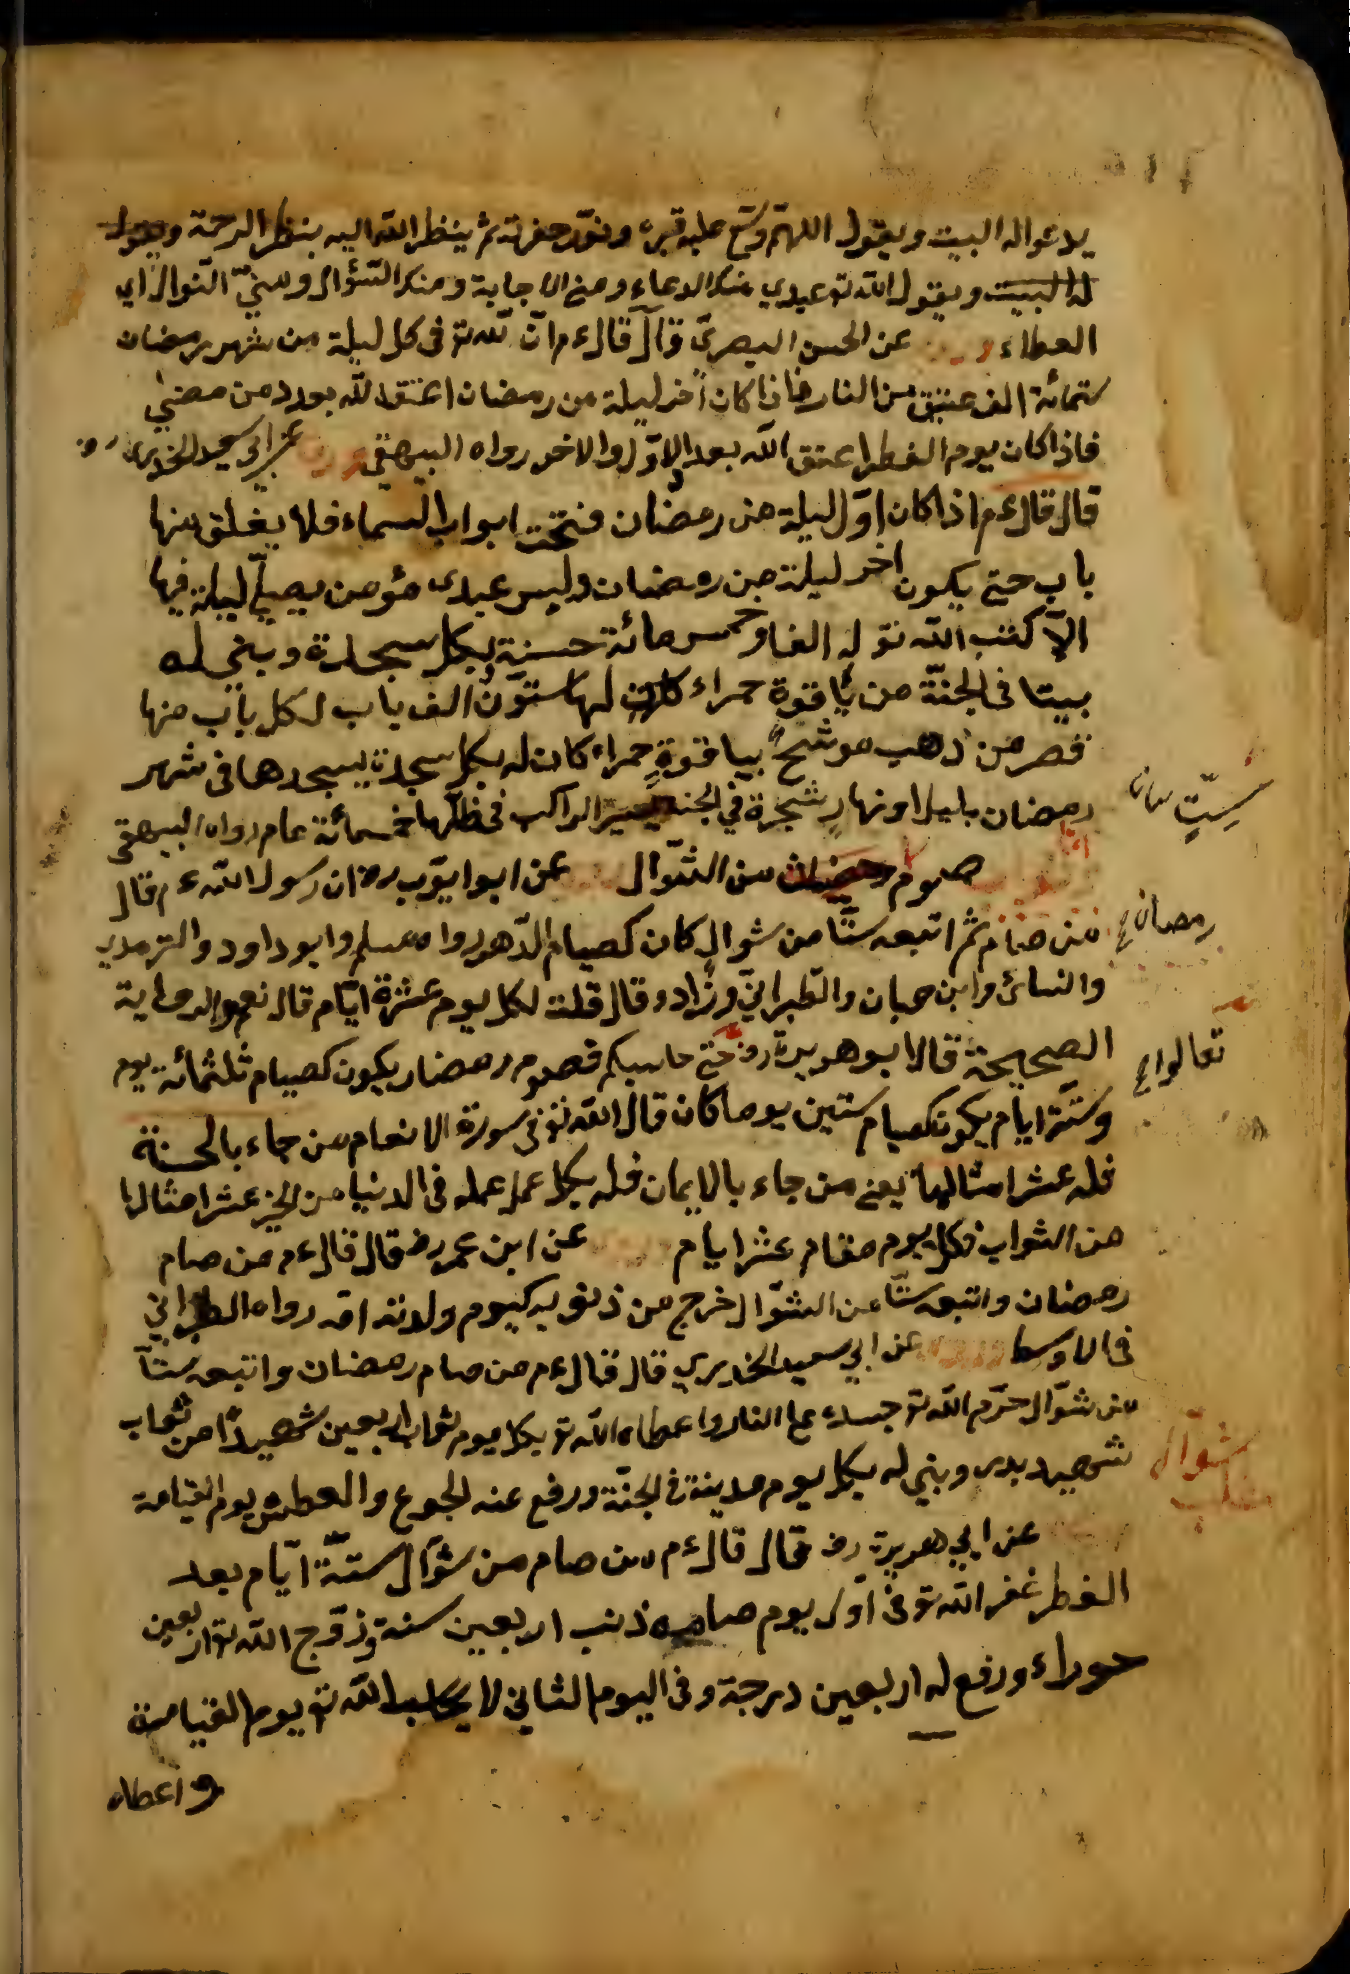 يدعو اله البيت ويقول اللهم وسّع عليه قبره ونوّر حفرته ثم ينظر الله اليه بنظر الرحمة ويقول
له البيت ويقول الله تع عبدي منك الدعاء ومني الاجابة ومنك السّؤال ومنيّ النّوال اي
العطاء عن الحسن البصريّ قال قال ءم انّ لله تع في كل ليلة من شهر رمضان
ستمائة الف عتيق من النار فاذا كان آخر ليلة من رمضان اعتق الله بعدد من مضىٰ
فاذا كان يوم الفطر اعتق الله بعد الاوّل والاخر رواه البيهقي عن ابي سعيد الخدري رض
قال قال ءم اذا كان اوّل ليلة من رمضان فتحت ابواب السماء فلا يغلق منها
باب حتي يكون اخر ليلة من رمضان وليس عبدى مؤمن يصلّي ليلة فيها
الاّ كتب الله تع له الفا وخمس مائة حسنة بكل سجدة وبني له
بيتا في الجنّة من ياقوة حمراء لها ستون الف باب لكل باب منها
قصر من ذهب موشّح بياقوةٍ حمراء كان له بكل سجدة يسجدها في شهر
رمضان بليل او نهارٍ شجرة في الجنة يسير الراكب في ظلّها خمسمائة عام رواه البيهقي
صوم رمضان من الشّوّال عن ابوا يوّب رض ان رسول الله ءم قال
من صام ثم اتبعه ستّا من شوال كان كصيام الدّهور رواه مسلم وابو داود والترمدي
والنسائ وابن حبان والطّبرانيّ وزاده وقال قلت لكل يوم عشرة ايّام قال نعم والرواية
الصحيحة قال ابو هريرة رض حتي حاسبكم فصوم رمضان يكون كصيام ثلثمائة يوم
وستّة ايام يكون كصيام ستين يوما كان قال الله تع في سورة الانعام من جاء بالحسنة
فله عشر امثالها يعني من جاء بالايمان فله بكل عمل عمله في الدنيا من الخير عشر امثالها
من الثواب فكل يوم مقام عشر ايام عن ابن عمر رض قال قال ءم من صام
رمضان واتبعه ستّا من الشوّال خرج من ذنوبه كيوم ولدته امّه رواه الطبراني
في الاوسط عن ابي سعيد الخديري قال قال ءم من صام رمضان واتبعه ستّاً
من شوّال حرّم الله تع جسده علي النار واعطاه الله تع بكل يوم ثواب اربعين شهيدًا من ثواب
شهيد بدر وبني له بكل يوم مدينة في الجنّة ورفع عنه الجوع والعطش يوم القيامة
عن ابي هريرة رض قال قال ءم من صام من شوّال ستّة ايّام بعد
الفطر غفر الله تع في اول يوم صامه ذنب اربعين سنة وزوّج الله تع اربعين
حوراء ورفع له اربعين درجة وفي اليوم الثاني لا يحاسب الله تع يوم القيامة
واعطاه
سِتٍّ
رمضان
تعالوا
شوّال